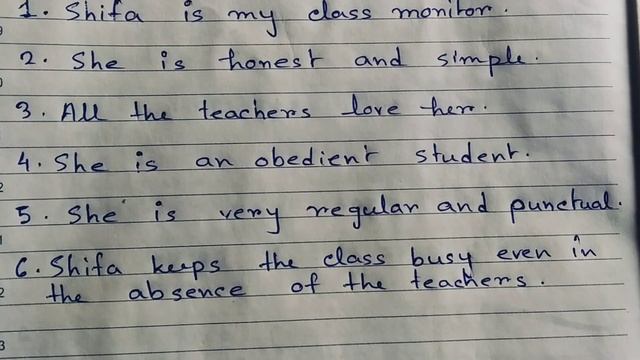 1. Shifa is my class monitor.
2. She is honest and simple.
3. All the teachers love her.
4. She is an obedient student.
5. She is very regular and punctual.
6. Shifa keeps the class busy even in
the absence of the teachers.